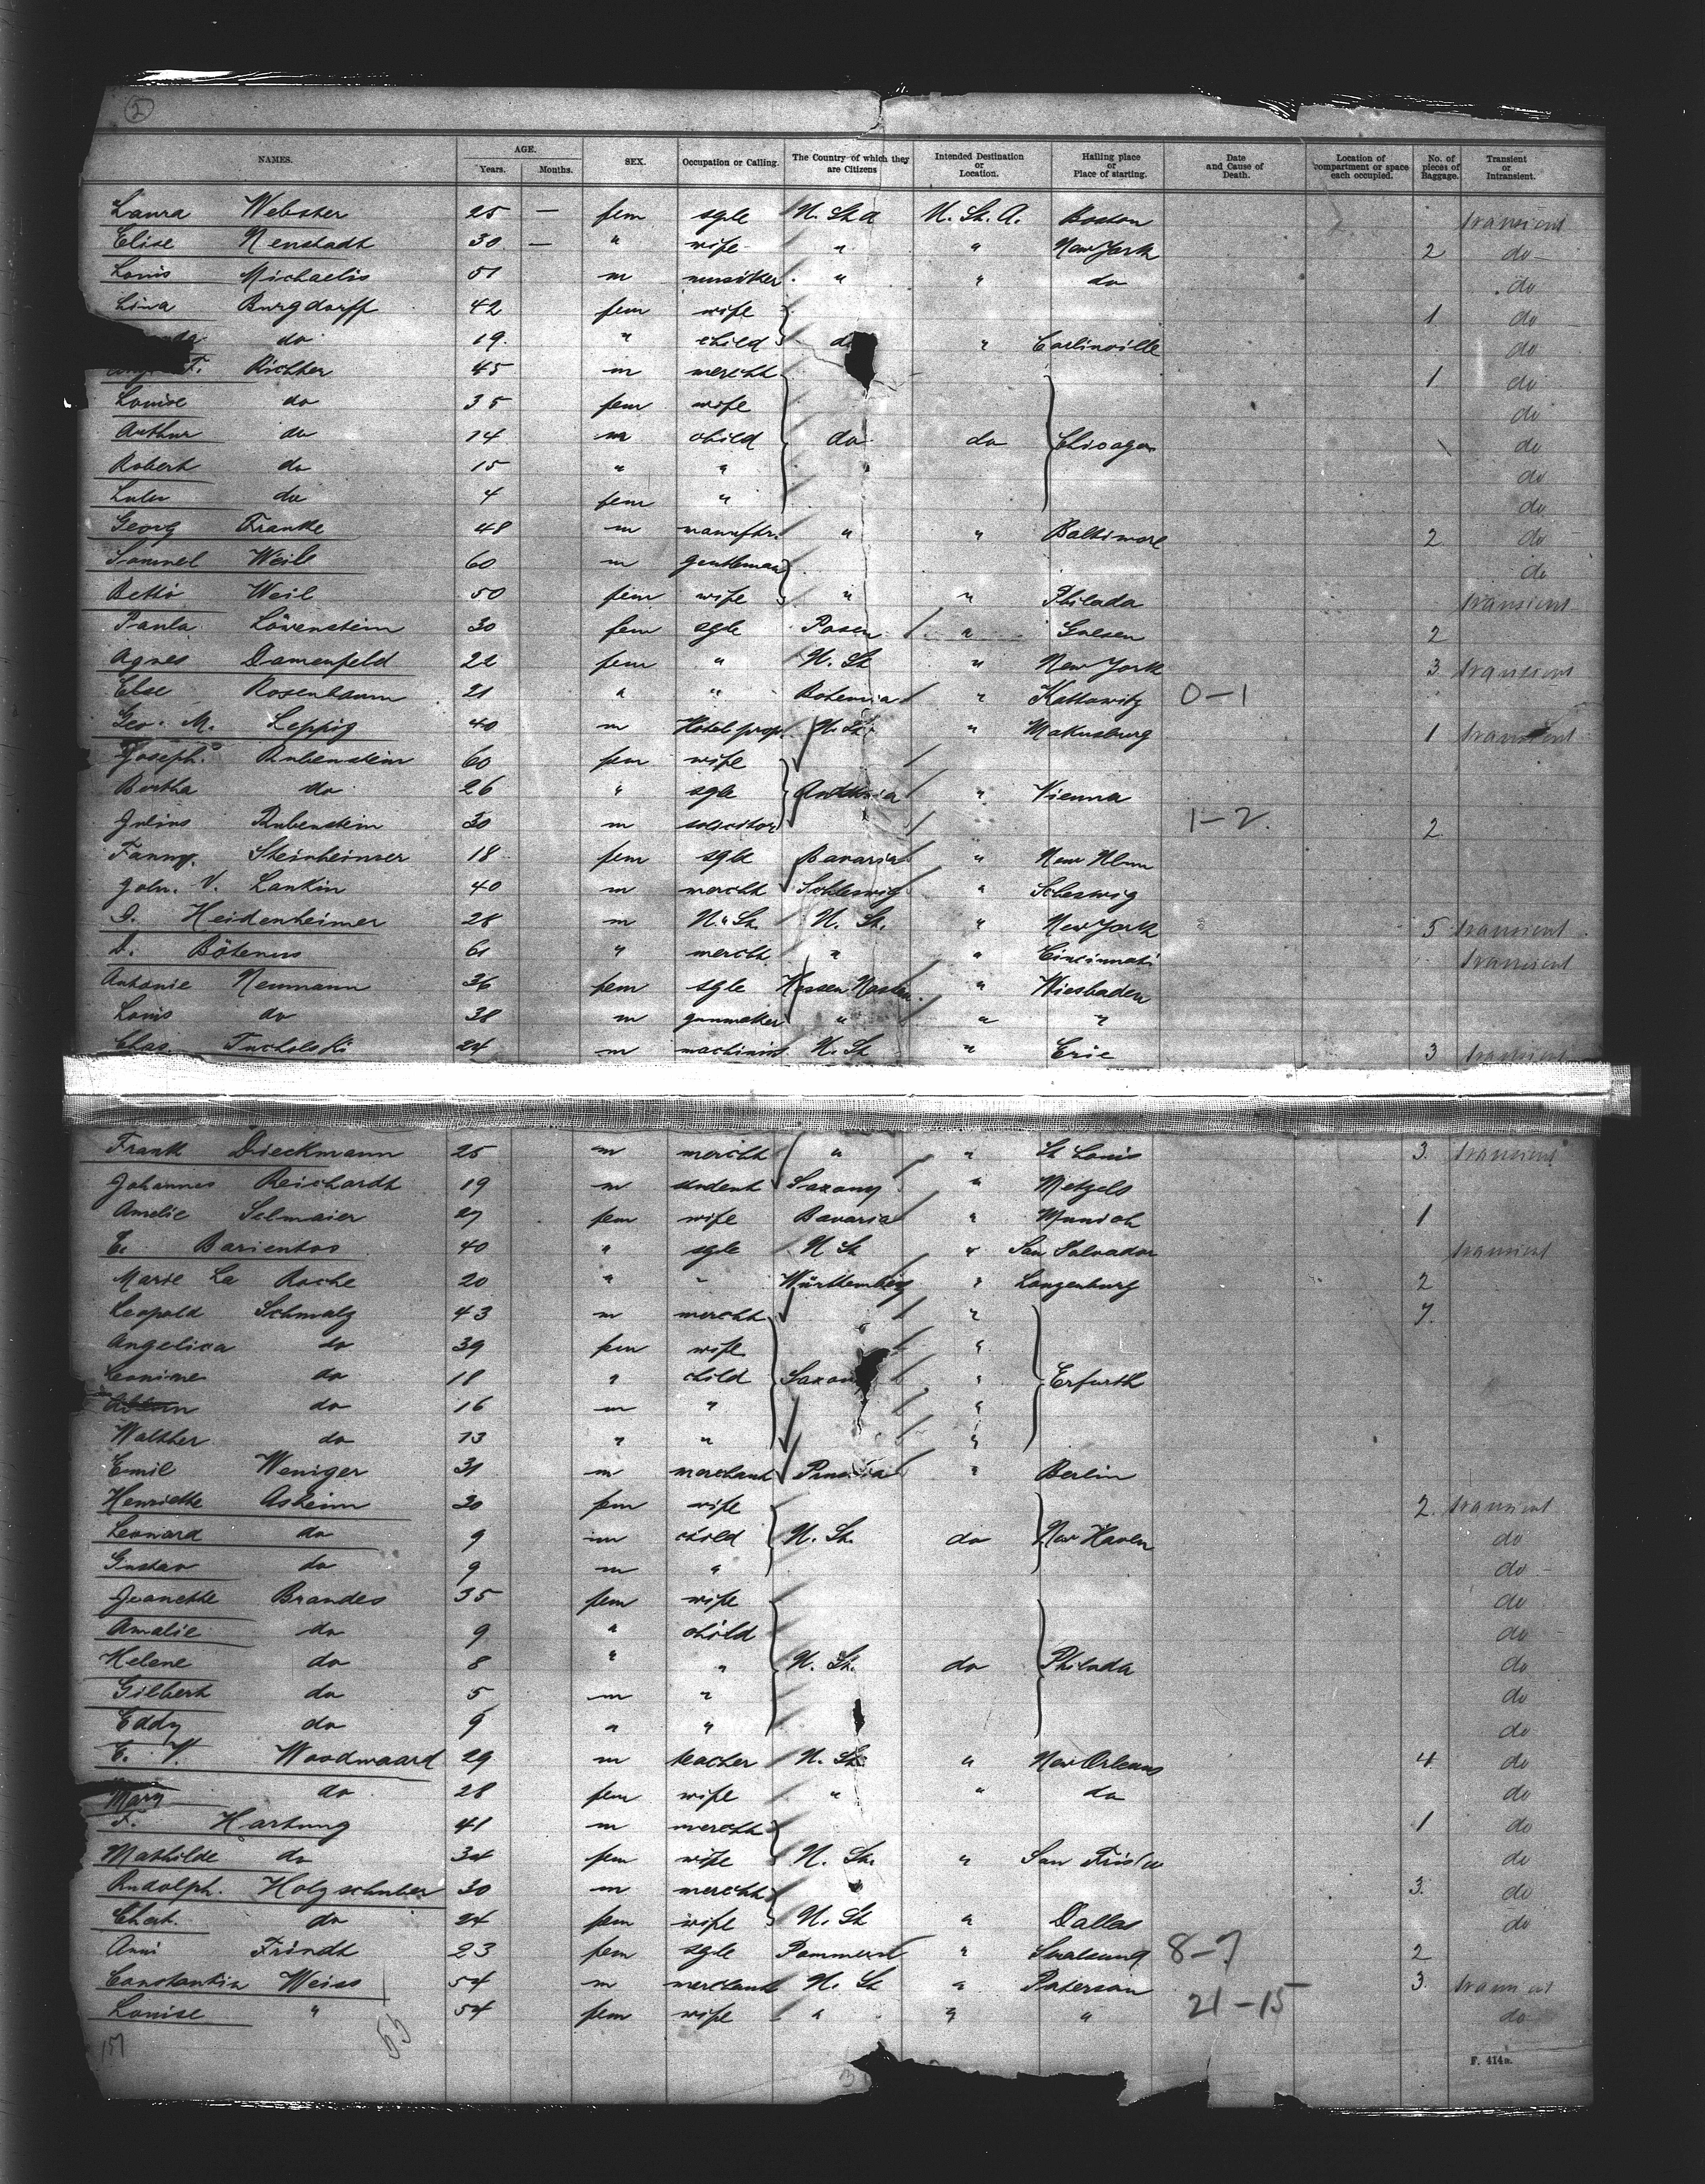 2
NAMES. AGE. Years. Months. SEX. Occupation or Calling. The Country of which they are Citizens Intended Destination or Location. Hailing place or Place of starting. Date and Cause of Death. Location of compartment or space each occupied. No. of pieces of Baggage. Transient or Intransient.
Laura Webster 25 — fem sgle U. St. A U. St. A. Boston transient
Elise Neustadt 30 — " wife " " New York 2 do
Louis Michaelis 51 m musiker " " do do
Lina Burgdorff 42 fem wife 1 do
do 19 " child " Carlinville do
F. Richter 45 m mercht 1 do
Louise do 35 fem wife do
Arthur do 14 m child do do Chicago do
Robert do 15 " " do
Lulu do 4 fem " do
Georg Franke 48 m manuftr. " " Baltimore 2 do
Samuel Weil 60 m gentleman do
Betti Weil 50 fem wife " " Philada transient
Paula Löwenstein 30 fem sgle Posen " Gnesen 2
Agnes Damenfeld 22 fem " U. St " New York 3 transient
Else Rosenbaum 21 " " Bohemia " Kattowitz 0-1
Geo. M. Leppig 40 m Hotel prop. U. St. " Makusburg 1 transient
Joseph. Rubenstein 60 fem wife
Bertha do 26 " sgle Austria " Vienna
Julius Rubenstein 30 m solicitor 1-2. 2
Fanny. Steinheimer 18 fem sgle Bavaria " New Ulm
John. V. Lankin 40 m mercht Schleswig " Scheswig
I. Heidenheimer 28 m U. St. U. St. " New York 5 transient
D. Böteners 61 " mercht " " Cincinnati transient
Antonie Neumann 36 fem sgle Hessen Nassau " Wiesbaden
Louis do 38 m gunmaker " " "
Chas. Tucholski 24 m machinist U. St " Erie 3 transient
Frank Dieckmann 25 m mercht " " St Louis 3. transient
Johannes Reichardt 19 m student Saxony " Metzels
Amelie Selmaier 27 fem wife Bavaria " Munich 1
E. Barientos 40 " sgle U St " San Salvador transient
Marie La Roche 20 " " Württemberg " Langenburg 2
Leopold Schmalz 43 m mercht " 7.
Angelica do 39 fem wife "
Leonine do 18 " child Saxony " Erfurth
do 16 m " "
Walther do 13 " " "
Emil Weniger 31 m merchant Prussia " Berlin
Henriette Asheim 30 fem wife 2. transient
Leonard do 9 m child U. St. do New Haven do
Gustav do 9 m " do
Jeanette Brandes 35 fem wife do
Amalie do 9 " child do
Helene do 8 " " U. St. do Philada do
Gilbert do 5 m " do
Eddy do 9 " " do
E. V. Woodwaard 29 m teacher U. St. " New Orleans 4 do
Mary do 28 fem wife " " do do
F. Hartung 41 m mercht 1 do
Mathilde do 34 fem wife U. St. " San Frisco do
Rudolph. Holzschuher 30 m mercht 3. do
Chat. do 24 fem wife U. St " Dallas do
Anni Frindt 23 fem sgle Pommern " Stralsund 8-7 2
Constantin Weiss 54 m merchant U. St " Paterson 3. transient
Louise " 54 fem wife " " " 21-15 do
55
F. 414a.